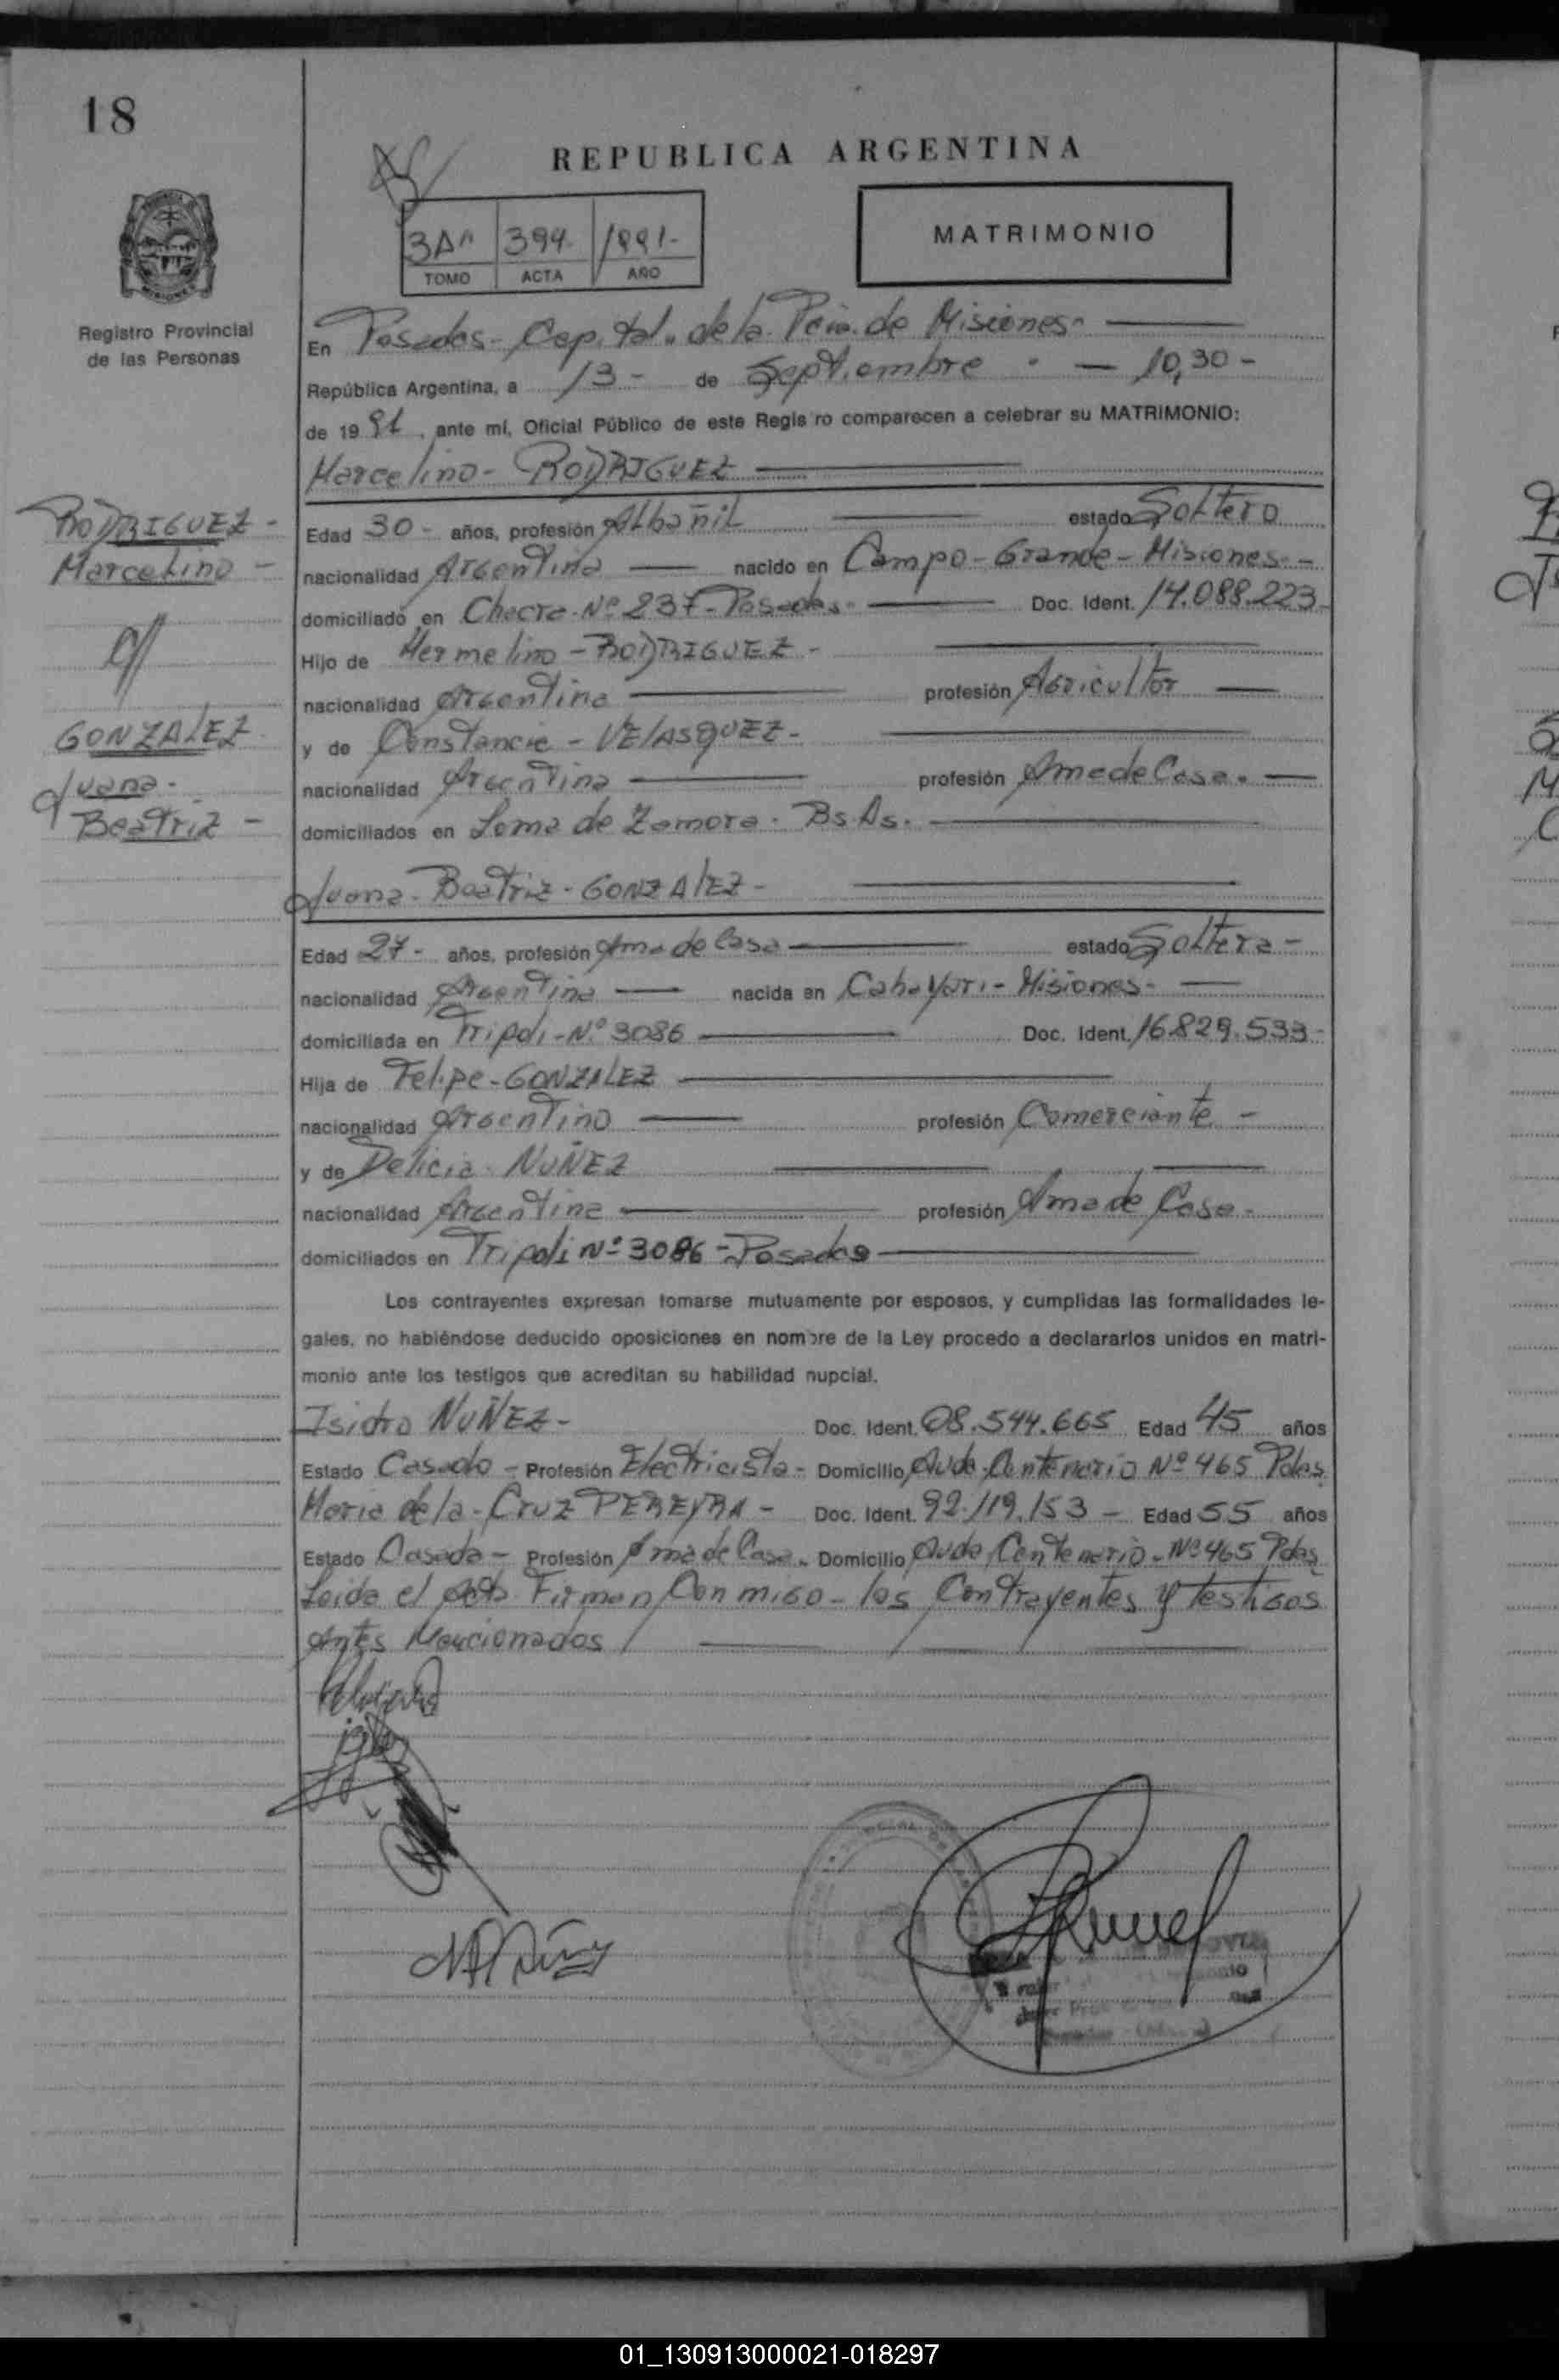 18
REPUBLICA ARGENTINA
394. 1991.-
TOMO ACTA AÑO
MATRIMONIO
Registro Provincial
de las Personas
En Posadas - Capital. de la Pcia. de Misiones-
República Argentina, a 13- de Septiembre - 10,30 -
de 19 91, ante mí, Oficial Público de este Regis ro comparecen a celebrar su MATRIMONIO:
Marcelino - RODRIGUEZ
RODRIGUEZ -
Marcelino -
GONZALEZ
Juana -
Beatriz -
Edad 30 - años, profesión Albañil estado Soltero
nacionalidad Argentina nacido en Campo - Grande - Misiones -
domiciliado en Chacra - Nº 237 - Posadas - Doc. Ident. 14.088.223
Hijo de Hermelino - RODRIGUEZ -
nacionalidad Argentina profesión Agricultor
y de Constancia - VELASQUEZ -
nacionalidad Argentina profesión Ama de Casa.
domiciliados en Loma de Zamora - Bs. As.
Juana - Beatriz - GONZALEZ -
Edad 27 - años, profesión Ama de Casa estado Soltera -
nacionalidad Argentina nacida en Misiones -
domiciliada en Tripoli - Nº 3086 Doc. Ident. 16.829.533 -
Hija de Felipe - GONZALEZ
nacionalidad Argentino profesión Comerciante -
y de Delicia - NUÑEZ
nacionalidad Argentina profesión Ama de Casa -
domiciliados en Tripoli Nº 3086 - Posadas
Los contrayentes expresan tomarse mutuamente por esposos, y cumplidas las formalidades le-
gales, no habiéndose deducido oposiciones en nombre de la Ley procedo a declararlos unidos en matri-
monio ante los testigos que acreditan su habilidad nupcial.
Isidro NUÑEZ - Doc. Ident. 08.544.665 Edad 45 años
Estado Casado - Profesión Electricista - Domicilio Avda. Centenario Nº 465 Pdas.
Maria de la - Cruz PEREYRA - Doc. Ident. 92.119.153 - Edad 55 años
Estado Casada - Profesión Ama de Casa. Domicilio Avda. Centenario - Nº 465 Pdas.
Leida el Acta Firman Con migo - los Contrayentes y testigos
Antes Mencionados
01_130913000021-018297